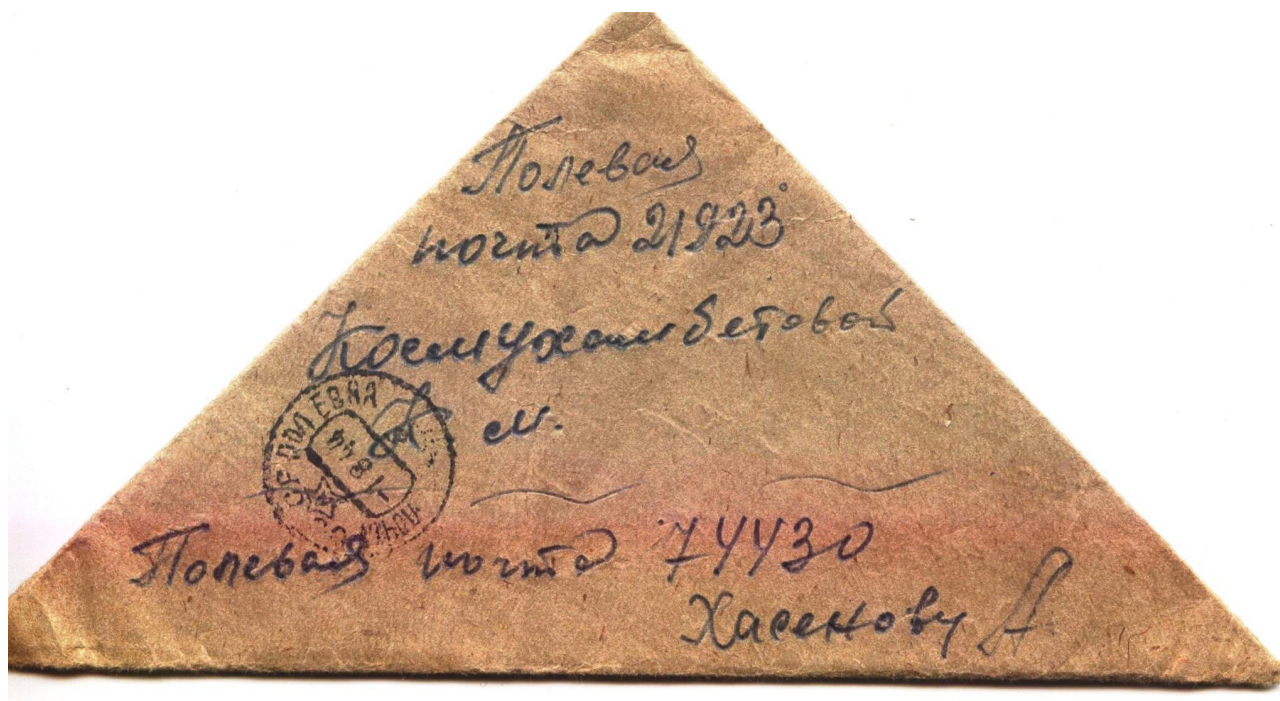 Полевая
почта 21923
Космухамбетовой
К м.
ПОЛЕВАЯ
Полевая почта 74430
Хасенову А